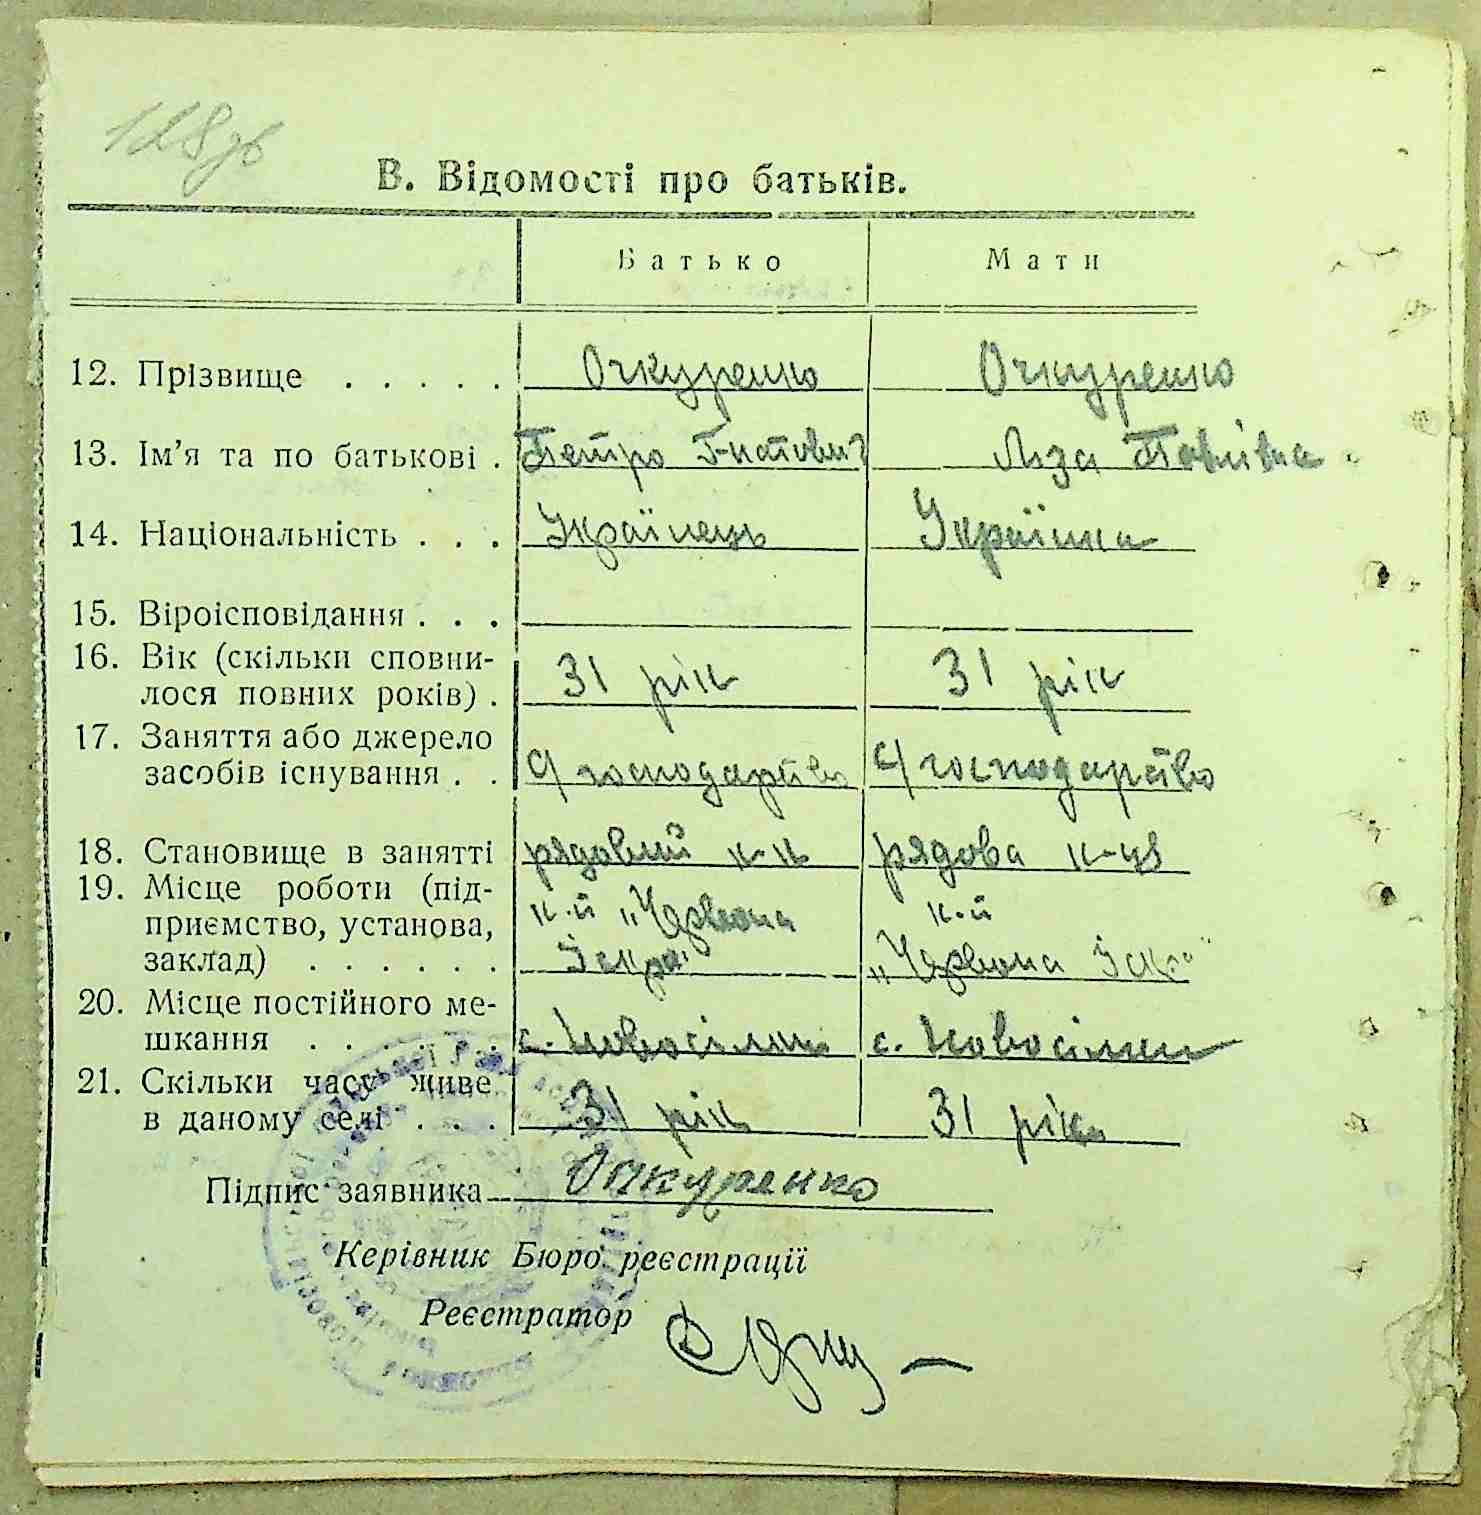 128 зв
В. Відомості про батьків.
Батько Мати
12. Прізвище . . . . . Очкуренко Очкуренко
13. Ім'я та по батькові . Петро Гнатович Ліза Павлівна
14. Національність . . . Українець Українка
15. Віроісповідання . . .
16. Вік (скільки сповни-
лося повних років) . 31 рік 31 рік
17. Заняття або джерело
засобів існування . . с/господарство с/господарство
18. Становище в занятті рядовий к-к рядова к-ця
19. Місце роботи (під-
приємство, установа, к-й „Червона к-й
заклад) . . . . . . Іскра" „Червона Іскр"
20. Місце постійного ме-
шкання . . . . . . с. Новосілки с. Новосілки
21. Скільки часу живе
в даному селі . . . 31 рік 31 рік
Підпис заявника Очкуренко
Керівник Бюро реєстрації
Реєстратор